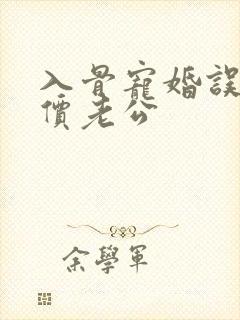 入骨寵婚誤
價老公
余學軍